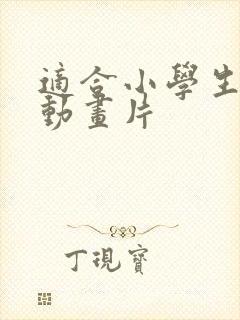 適合小學生
動畫片
丁現寶